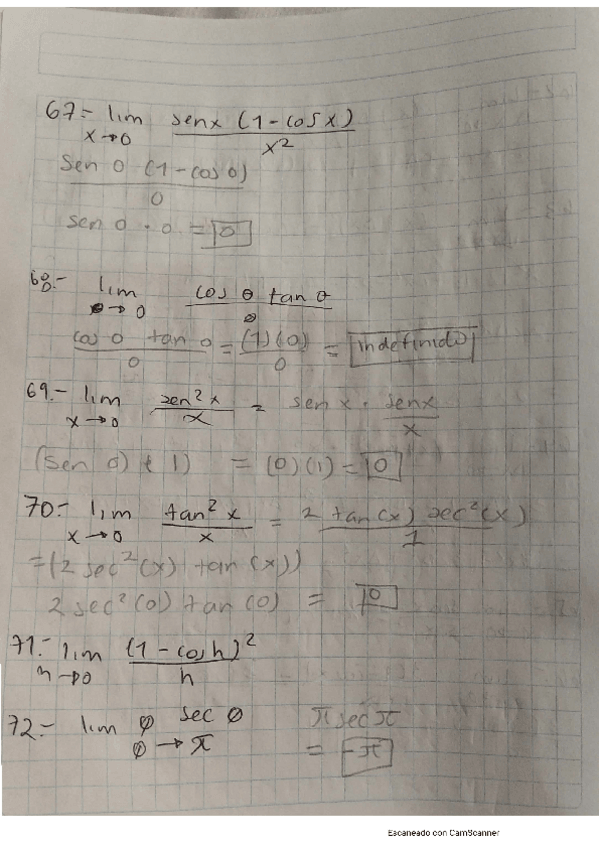 67.- lim senx (1-cosx)
x→0 x²
Sen 0 (1-cos 0)
0
sen 0 · 0 = 0
68.- lim cos θ tan θ
θ→0 θ
cos 0 tan 0 = (1)(0) = indefinido
0 0
69.- lim sen² x = sen x · senx
x→0 x x
(sen 0) (1) = (0)(1) = 0
70.- lim tan² x = 2 tan(x) sec²(x)
x→0 x 1
=(2 sec²(x) tan(x))
2 sec²(0) tan(0) = 0
71.- lim (1-cosh)²
h→0 h
72.- lim φ sec φ π sec π
φ→π = -π
Escaneado con CamScanner